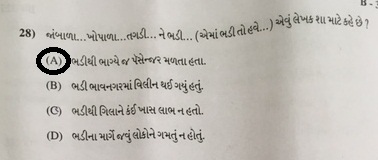 B - 1
28) જાંબાળા...ખોપાળા...તગડી... ને ભડી... (એમાં ભડી તો હવે...) એવું લેખક શા માટે કહે છે ?
(A) ભડીથી ભાગ્યે જ પૅસેન્જર મળતા હતા.
(B) ભડી ભાવનગરમાં વિલીન થઈ ગયું હતું.
(C) ભડીથી ગિલાને કંઈ ખાસ લાભ ન હતો.
(D) ભડીના માર્ગે જવું લોકોને ગમતું ન હોતું.